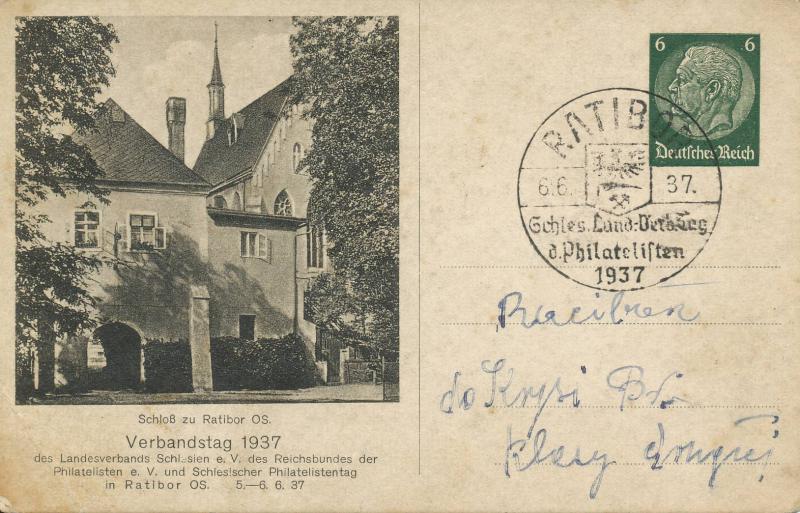 Schloß zu Ratibor OS.
Verbandstag 1937
des Landesverbands Schlesien e. V. des Reichsbundes der
Philatelisten e. V. und Schlesischer Philatelistentag
in Ratibor OS. 5.—6. 6. 37
6 6
Deutsches Reich
RATIBOR
6.6. 37.
Schles. Land-Verb.Tag
d. Philatelisten
1937
do Krysi
klasy